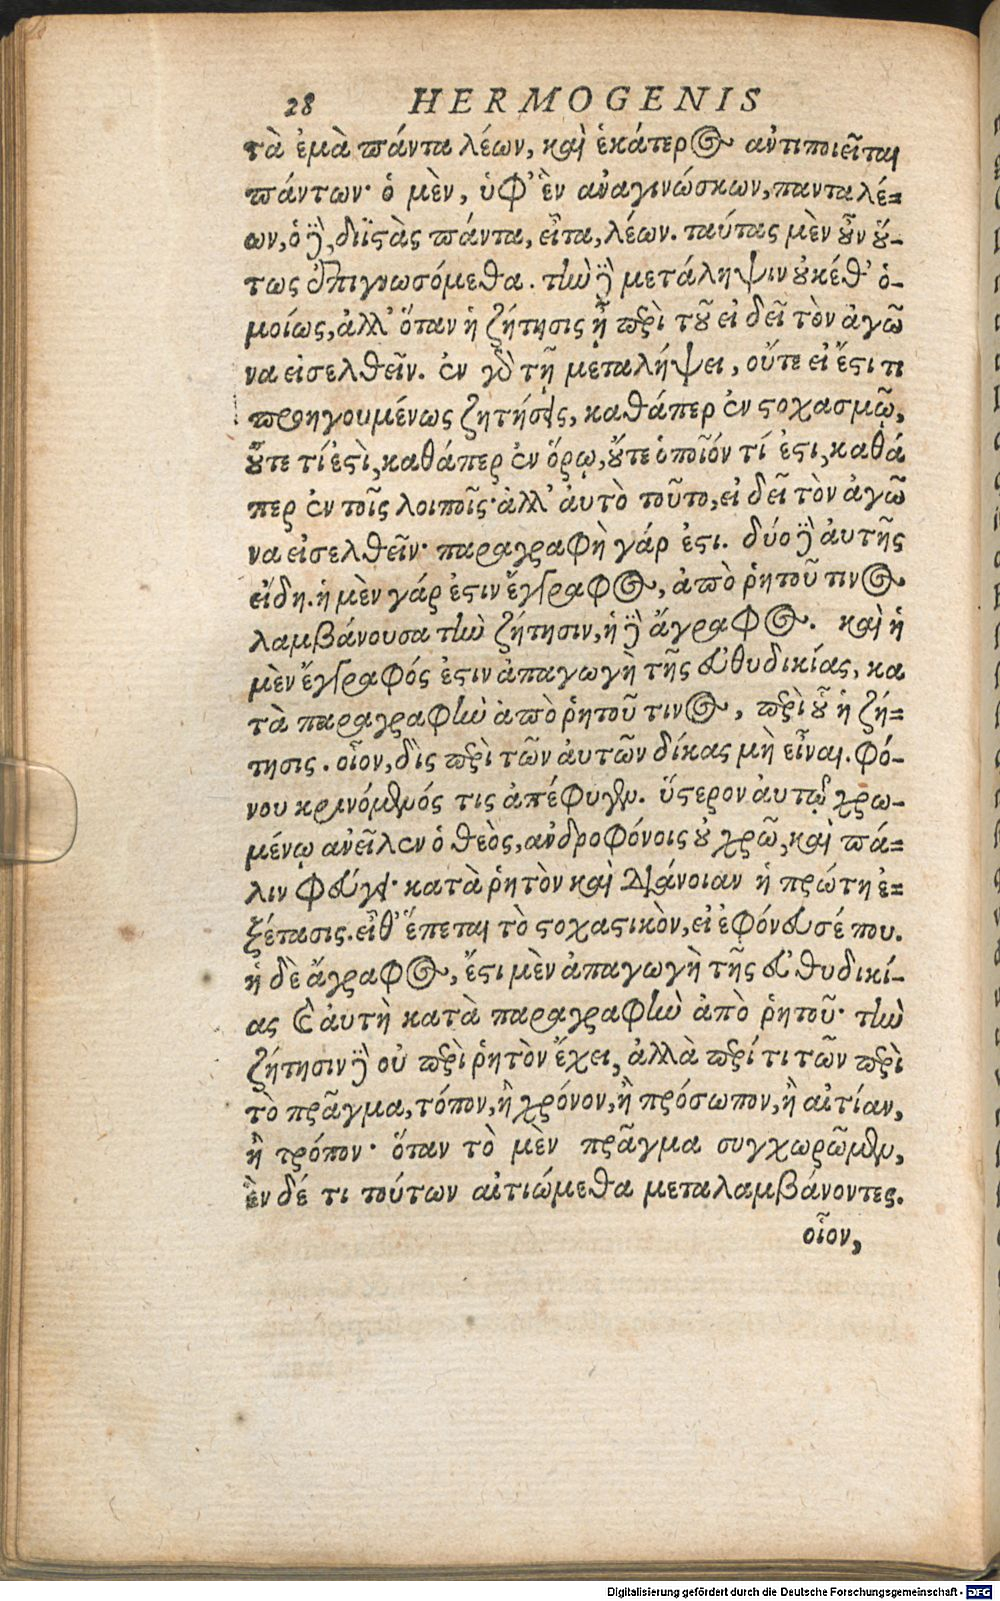 28 HERMOGENIS
τὰ ἐμὰ πάντα λέων, καὶ ἑκάτερος ἀντιποιεῖται
πάντων· ὁ μὲν, ὑφ’ ἓν ἀναγινώσκων, πανταλέ=
ων, ὁ δὲ, διϊστὰς πάντα, εἶτα, λέων. ταύτας μὲν οὖν οὕ-
τως ἐπιγνωσόμεθα. τὴν δὲ μετάληψιν οὐκέθ’ ὁ-
μοίως, ἀλλ’ ὅταν ἡ ζήτησις ᾖ περὶ τοῦ εἰ δεῖ τὸν ἀγῶ
να εἰσελθεῖν. ἐν γὰρ τῇ μεταλήψει, οὔτε εἰ ἔστι τι
προηγουμένως ζητήσεις, καθάπερ ἐν στοχασμῷ,
οὔτε τί ἐστὶ, καθάπερ ἐν ὅρῳ, οὔτε ὁποῖόν τί ἐστι, καθά
περ ἐν τοῖς λοιποῖς· ἀλλ’ αὐτὸ τοῦτο, εἰ δεῖ τὸν ἀγῶ
να εἰσελθεῖν· παραγραφὴ γάρ ἐστι. δύο δὲ αὐτῆς
εἴδη. ἡ μὲν γάρ ἐστιν ἔγγραφος, ἀπὸ ῥητοῦ τινος
λαμβάνουσα τὴν ζήτησιν, ἡ δὲ ἄγραφος. καὶ ἡ
μὲν ἔγγραφός ἐστιν ἀπαγωγὴ τῆς εὐθυδικίας, κα
τὰ παραγραφὴν ἀπὸ ῥητοῦ τινος, περὶ οὗ ἡ ζή=
τησις. οἷον, δὶς περὶ τῶν αὐτῶν δίκας μὴ εἶναι. φό-
νου κρινόμενός τις ἀπέφυγεν. ὕστερον αὐτῷ χρω-
μένῳ ἀνεῖλεν ὁ θεὸς, ἀνδροφόνοις οὐ χρῶ, καὶ πά=
λιν φεύγει· κατὰ ῥητὸν καὶ διάνοιαν ἡ πρώτη ἐ=
ξέτασις. εἶθ’ ἕπεται τὸ στοχαστικὸν, εἰ ἐφόνευσέ που.
ἡ δὲ ἄγραφος, ἔστι μὲν ἀπαγωγὴ τῆς εὐθυδικί-
ας καὶ αὐτὴ κατὰ παραγραφὴν ἀπὸ ῥητοῦ· τὴν
ζήτησιν δὲ οὐ περὶ ῥητὸν ἔχει, ἀλλὰ περί τι τῶν περὶ
τὸ πρᾶγμα, τόπον, ἢ χρόνον, ἢ πρόσωπον, ἢ αἰτίαν,
ἢ τρόπον· ὅταν τὸ μὲν πρᾶγμα συγχωρῶμεν,
ἓν δέ τι τούτων αἰτιώμεθα μεταλαμβάνοντες.
οἷον,
Digitalisierung gefördert durch die Deutsche Forschungsgemeinschaft - DFG